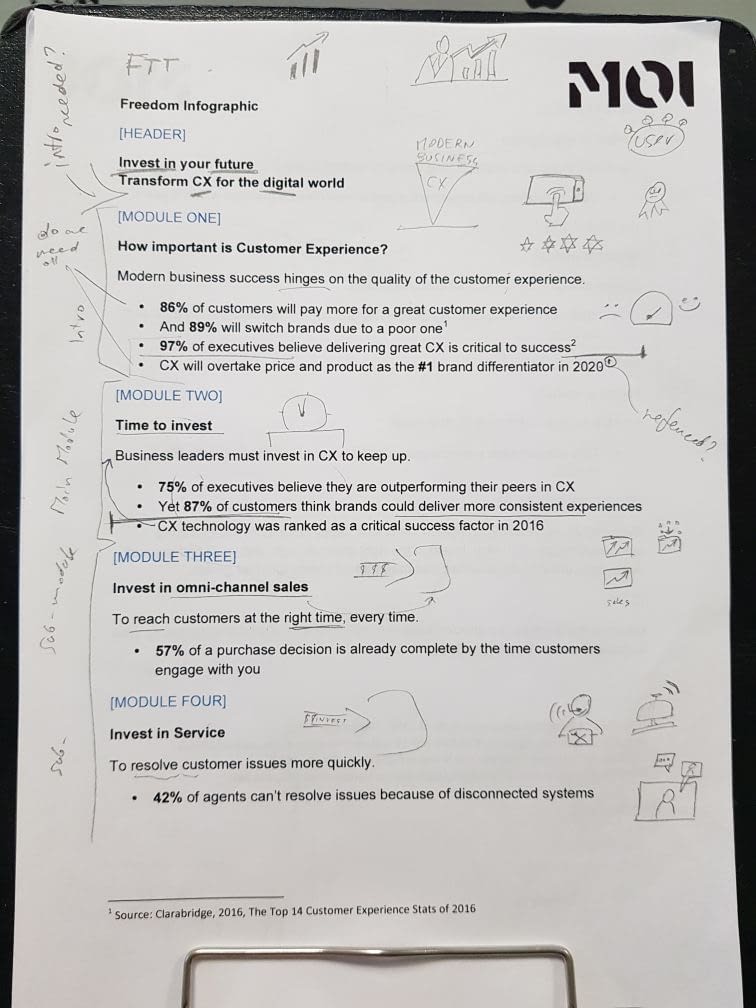 intro needed?
FTT
MOI
Freedom Infographic
[HEADER]
USER
MODERN
BUSINESS
CX
Invest in your future
Transform CX for the digital world
do we
need
Intro
[MODULE ONE]
How important is Customer Experience?
Modern business success hinges on the quality of the customer experience.
• 86% of customers will pay more for a great customer experience
• And 89% will switch brands due to a poor one1
• 97% of executives believe delivering great CX is critical to success2
• CX will overtake price and product as the #1 brand differentiator in 2020
Main Module
[MODULE TWO]
Time to invest
Business leaders must invest in CX to keep up.
• 75% of executives believe they are outperforming their peers in CX
• Yet 87% of customers think brands could deliver more consistent experiences
• CX technology was ranked as a critical success factor in 2016
Sub-module
[MODULE THREE]
$$$
sales
Invest in omni-channel sales
To reach customers at the right time, every time.
• 57% of a purchase decision is already complete by the time customers
engage with you
Sub-
[MODULE FOUR]
INVEST
Invest in Service
To resolve customer issues more quickly.
• 42% of agents can't resolve issues because of disconnected systems
1 Source: Clarabridge, 2016, The Top 14 Customer Experience Stats of 2016